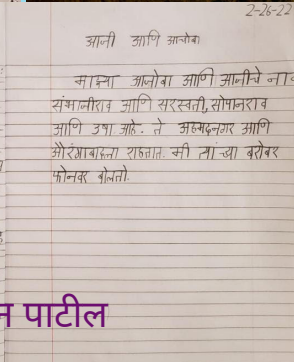 2-26-22
आजी आणि आजोबा
माझ्या आजोबा आणि आजीचे नाव
संभाजीराव आणि सरस्वती, सोपानराव
आणि उषा आहे. ते अहमदनगर आणि
औरंगाबादला राहतात. मी त्यांच्या बरोबर
फोनवर बोलतो.
न पाटील